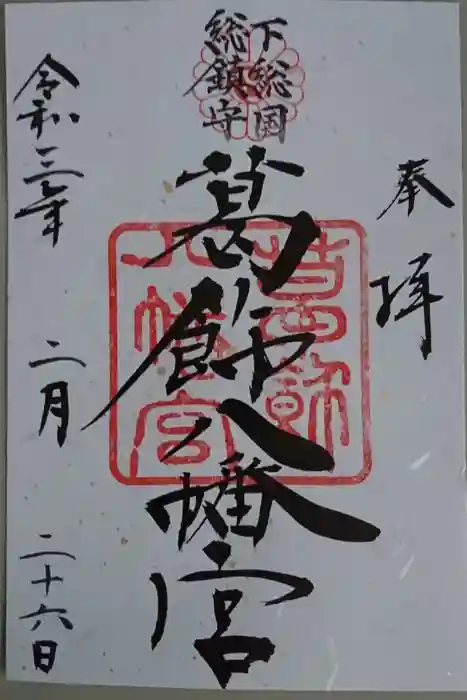 奉拝
下総国
総鎮守
葛飾八幡宮
葛飾
八幡宮
令和三年
二月
二十六日